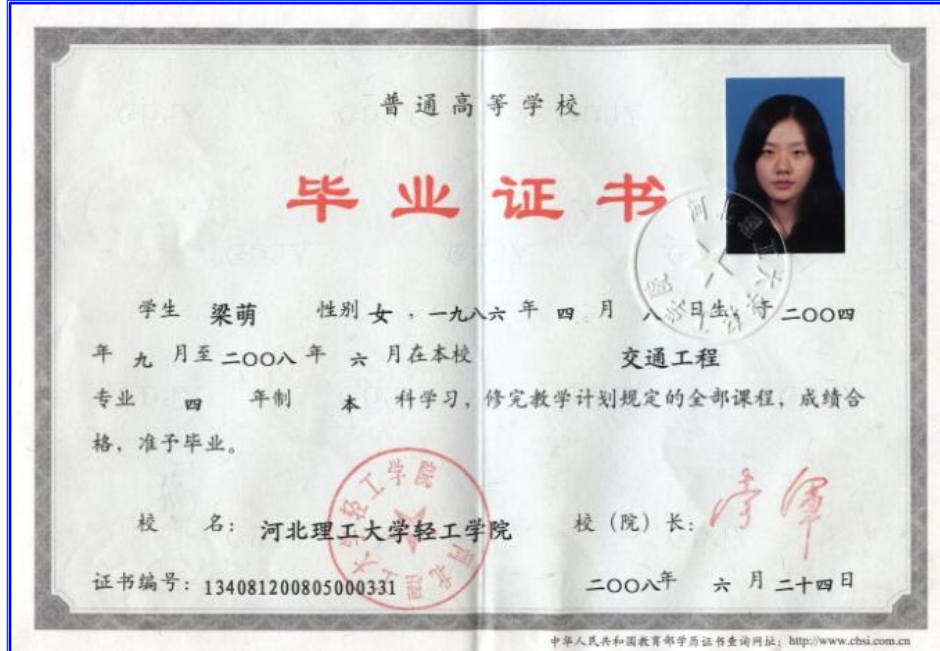 普通高等学校
毕业证书
学生 梁萌 性别 女 ，一九八六 年 四 月 八 日生，于 二〇〇四
年 九 月至 二〇〇八 年 六 月在本校 交通工程
专业 四 年制 本 科学习，修完教学计划规定的全部课程，成绩合
格，准予毕业。
校 名：河北理工大学轻工学院 校（院）长：
河北理工大学轻工学院
证书编号：134081200805000331 二〇〇八年 六 月 二十四日
中华人民共和国教育部学历证书查询网址：http://www.chsi.com.cn